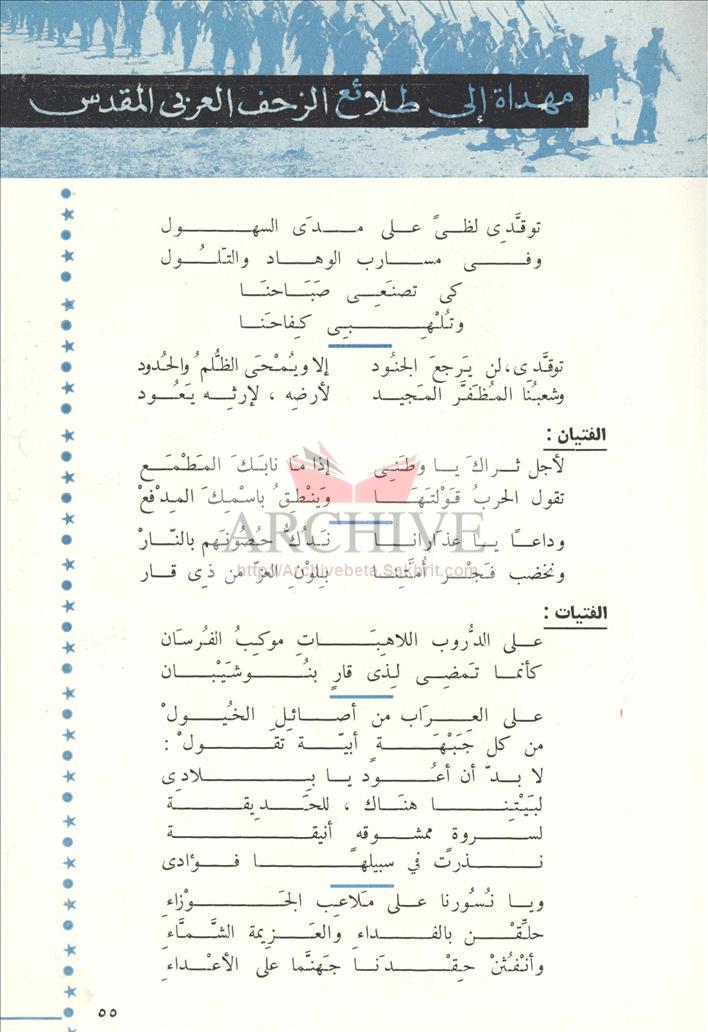 مهداة إلى طلائع الزحف العربى المقدس
توقَّدِى لظىً على مدَى السهول
وفى مسارب الوهاد والتّلُول
كى تصنَعِى صَبَاحنَا
وتُلْهِبِى كِفاحنَا
توقَّدى، لن يَرجعَ الجنُود إلا ويُمْحَى الظّلمُ والحُدود
وشعبُنَا المُظَفَّر المَجيد لأرضِه ، لإرثِه يَعُود
الفتيان :
لأجل ثراكَ يا وطَنِى إذا مَا نابكَ المَطْمَع
تقول الحربُ قَوْلتَهَا وَينْطِقُ باسْمِكَ المِدْفعْ
وداعًا يا عذارانا نَدُكُّ حُصُونَهم بالنّارْ
ونخضب فَجْرَ أمّتِنا بلوْنِ العزّ من ذِى قار
الفتيات :
على الدُّروب اللاهِبَاتِ موكبُ الفُرسَان
كأنما تَمضِى لِذِى قارٍ بنُو شَيْبْان
على العِرَاب من أصائلِ الخيُولْ
من كل جَبْهَةٍ أبيّة تقُولْ :
لا بدّ أن أعُود يا بِلادِى
لبَيْتِنا هنَاك ، للحَديقة
لسروة ممشوقه أنيقة
نذرتُ في سبيلها فؤادى
ويا نسُورنا على مَلاعِب الجَوْزاءِ
حلِّقْن بالفداءِ والعَزيمة الشَّمَّاءِ
وأنْفُثنْ حِقْدَنا جَهنَّما على الأعْداءِ
٥٥
ARCHIVE
http://Archivebeta.Sakhrit.com